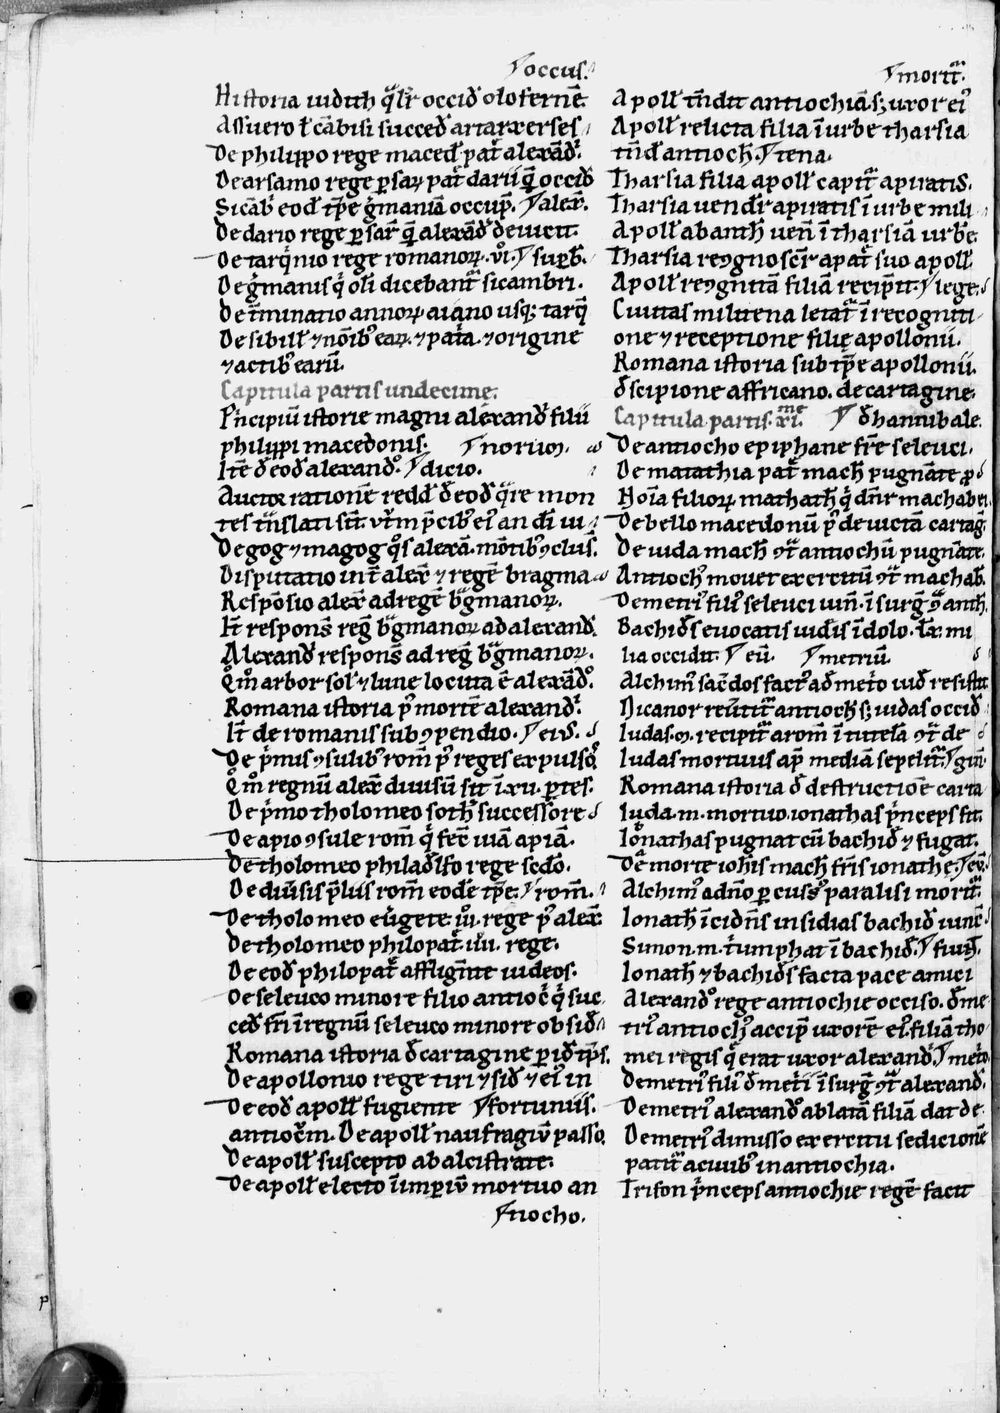 occus.
Historia iudith qĺr occid̄ olofernē.
Assuero ł cābisi succed̄ artarxerses
De philippo rege maced̄ pat̄ alexād̄.
De arsamo rege ꝑsaꝝ pat̄ darii q̄ occid̄
Sicāb̄ eod̄ tp̄e ḡmaniā occup̄. alex̄.
De dario rege ꝑsaꝝ q̄ alexād̄ deuicit.
De tarq̇nio rege romanoꝝ .vii. suꝑb̄.
De ḡmanis q̇ oli dicebant̄ sicambri.
De t̄minatio annoꝝ a iano usqꝫ tarq̄
De sibill̄ ⁊ noīb᷒ eaꝝ ⁊ pat̄a. ⁊ origine
⁊ actib᷒ earū.
Capitula partis undecime.
P̄ncipiū istorie magni alexand̄ filii
philippi macedonis. norum.
Itē d̄ eod̄ alexand̄o. dicio.
Auctor rationē redd̄ d̄ eod̄ q̄re mon
tes t̄nslati sūt. vt̄m p̄cib᷒ ei᷒ an di ui
De gog ⁊ magog q̊s alexā. mōtib᷒ ꝯclus̄.
Disputatio int̄ alex̄ ⁊ regē bragma
Respōsio alex̄ ad regē b̄gmanoꝝ.
It̄ respons̄ reḡ b̄gmanoꝝ ad alexand̄.
Alexand̄ respons̄ ad reḡ b̄gmanoꝝ.
Q̊m̄ arbor sol̄ ⁊ lune locuta ē alexād̄o.
Romana istoria p᷒ mortē alexand̄.
It̄ de romanis sub ꝯpendio. eid̄.
De p̄mis ꝯsulib᷒ rom̄ p᷒ reges expulsos
Q̊m̄ regnū alex̄ diuisū sit ī .xii. ꝑtes.
De p̄mo tholomeo soth̄ successore
De apio ꝯsule rom̄ q̇ fec̄ uiā apiā.
De tholomeo philad̄lfo rege scd̄o.
De diu̅sis p̄lus rom̄ eodē tp̄e. rom̄.
De tholomeo eu̅gete .iii. rege p᷒ alex̄
De tholomeo philopat̄ .iiii. rege.
De eod̄ philopat̄ affligēte iudeos.
De seleuco minore filio antioc̄ q̇ suc
ced̄ fr̄i ī regnū seleuco minore ob sid̄
Romana istoria d̄ cartagine ꝑ id̄ tp̄s.
De apollonio rege tiri ⁊ sid̄ ⁊ ei᷒ in
De eod̄ apoll̄ fugiente fortuniis.
antioc̄m. De apoll̄ naufragiū passo.
De apoll̄ suscepto ab alcistrate.
De apoll̄ electo ī imperiū mortuo an
tiocho.
morit̄.
Apoll̄ t̄ndit antiochiā sꝫ uxor ei᷒
Apoll̄ relicta filia ī urbe tharsia
t̄nd̄ antioch̄. tena.
Tharsia filia apoll̄ capit̄ a piratis.
Tharsia uendr̄ a piratis ī urbe mili
Apoll̄ ab anth̄ ven̄ ī tharsiā urbē.
Tharsia reꝯgnoscr̄ a pat̄ suo apoll̄
Apoll̄ reꝯgnitā filiā recipit. lege.
Ciuitas militena letat̄ ī recogniti
one ⁊ receptione filie apollonii.
Romana istoria sub tp̄e apollonii.
d̄ scipione affricano. de cartagine.
Capitula partis .xime. d̄ hannibale.
De antiocho epiphane fr̄e seleuci.
De matathia pat̄ mach̄ pugnāte p̄
Noīa filioꝝ mathath̄ q̇ dn̄r machabei
De bello macedonū p᷒ deuictā cartag̅.
De iuda mach̄ ꝯt̄ antiochū pugnāte.
Antioch᷒ mouet exercitū ꝯt̄ machab̄.
Demetri᷒ fili᷒ seleuci uiñ. ī surg̅ ꝯ̄ anth̄.
Bachid̄s euocatis iudis ī dolo .lx. mi
lia occidit. eū. metriū.
Alchim᷒ sac̄dos fact᷒ a d̄met̄o iud̄ resistit
Nicanor reu̅tit̄ antioch̄ sꝫ iudas occid̄
Iudas .m. recipit̄ a rom̄ ī tutela ꝯt̄ de
Iudas mortuus ap̄ mediā sepelit̄. ginē
Romana istoria d̄ destructiōe carta
Iuda .m. mortuo. ionathas p̄nceps fit.
Ionathas pugnat cū bachid̄ ⁊ fugat.
De morte ioh̄is mach̄ fr̄is ionathe. eū.
Alchim᷒ a dn̄o percuss᷒ paralisi morit̄.
Ionath̄ īcidn̄s insidias bachid̄ iunc̄
Simon .m. t̄umphat ī bachid̄. fuiḡ.
Ionath̄ ⁊ bachid̄s facta pace amici
Alexand̄o rege antiochie occiso. d̄me
tri᷒ antioch᷒ accip̄ uxorē ei᷒. filiā tho
mei regis q̄ erat uxor alexand̄. met̄o
Demetri᷒ fili᷒ d̄met̄i ī surg̅ ꝯt̄ alexand̄.
Demetri᷒ alexand̄o ablatā filiā dat de
Demetri᷒ dimisso exercitu sedicionē
patit̄ a ciuib᷒ in antiochia.
Trifon p̄nceps antiochie regē facit